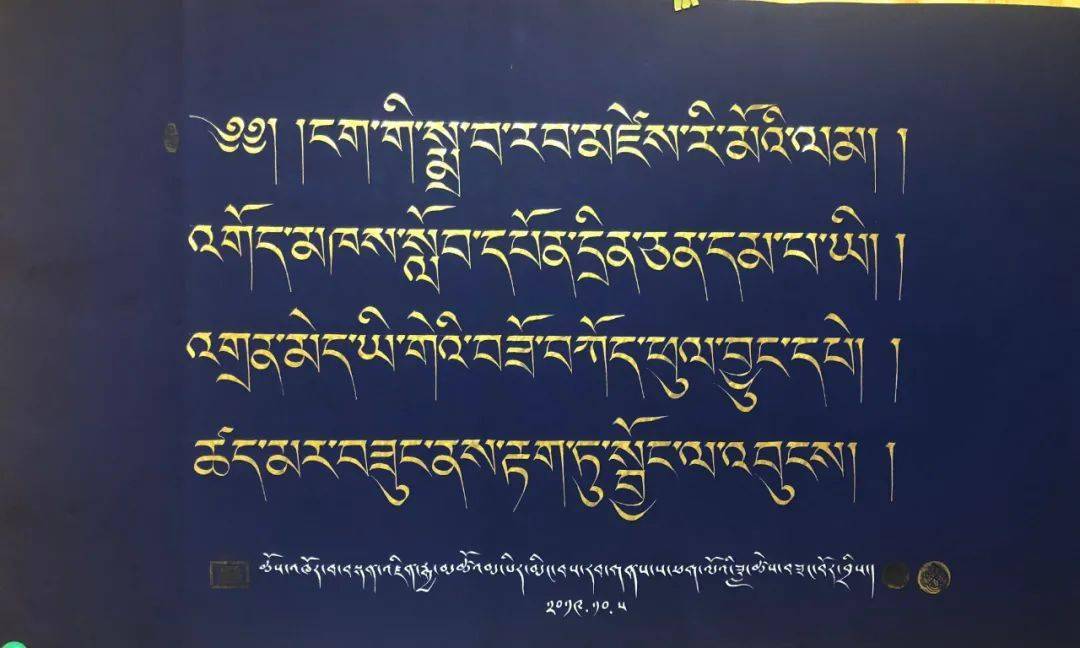 ༄༅། །ངག་གི་སྨྲ་བ་རབ་མཛེས་རི་མོའི་ལམ། །
འགོད་མཁས་སློབ་དཔོན་དྲིན་ཅན་དམ་པ་ཡི། །
འགྲན་མེད་ཡི་གེའི་བཟོ་བཀོད་ཕུལ་བྱུང་དཔེ། །
ཚད་མར་བཟུང་ནས་རྟག་ཏུ་སྦྱོང་ལ་འབུངས། །
༢༠༡༩.༡༠.༥